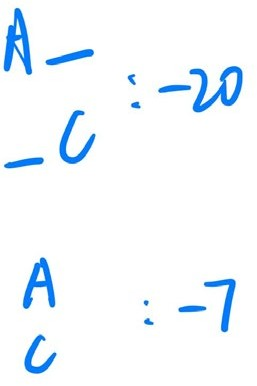 A _
_ C : -20
A
C : -7